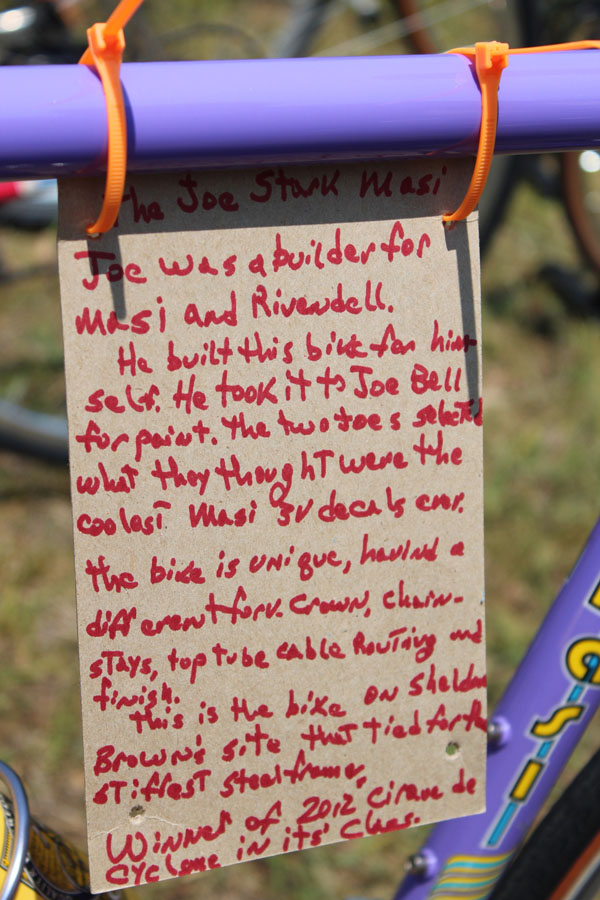 The Joe Stark Masi
Joe was a builder for
Masi and Rivendell.
He built this bike for him
self. He took it to Joe Bell
for paint. The two Joes selected
what they thought were the
coolest Masi 3V decals ever.
The bike is unique, having a
different fork crown, chain-
stays, top tube cable Routing and
finish.
This is the bike on Sheldon
Brown's site that tied for the
stiffest steel frame.
Winner of 2012 "Cirque de
Cyclisme in its' Class.